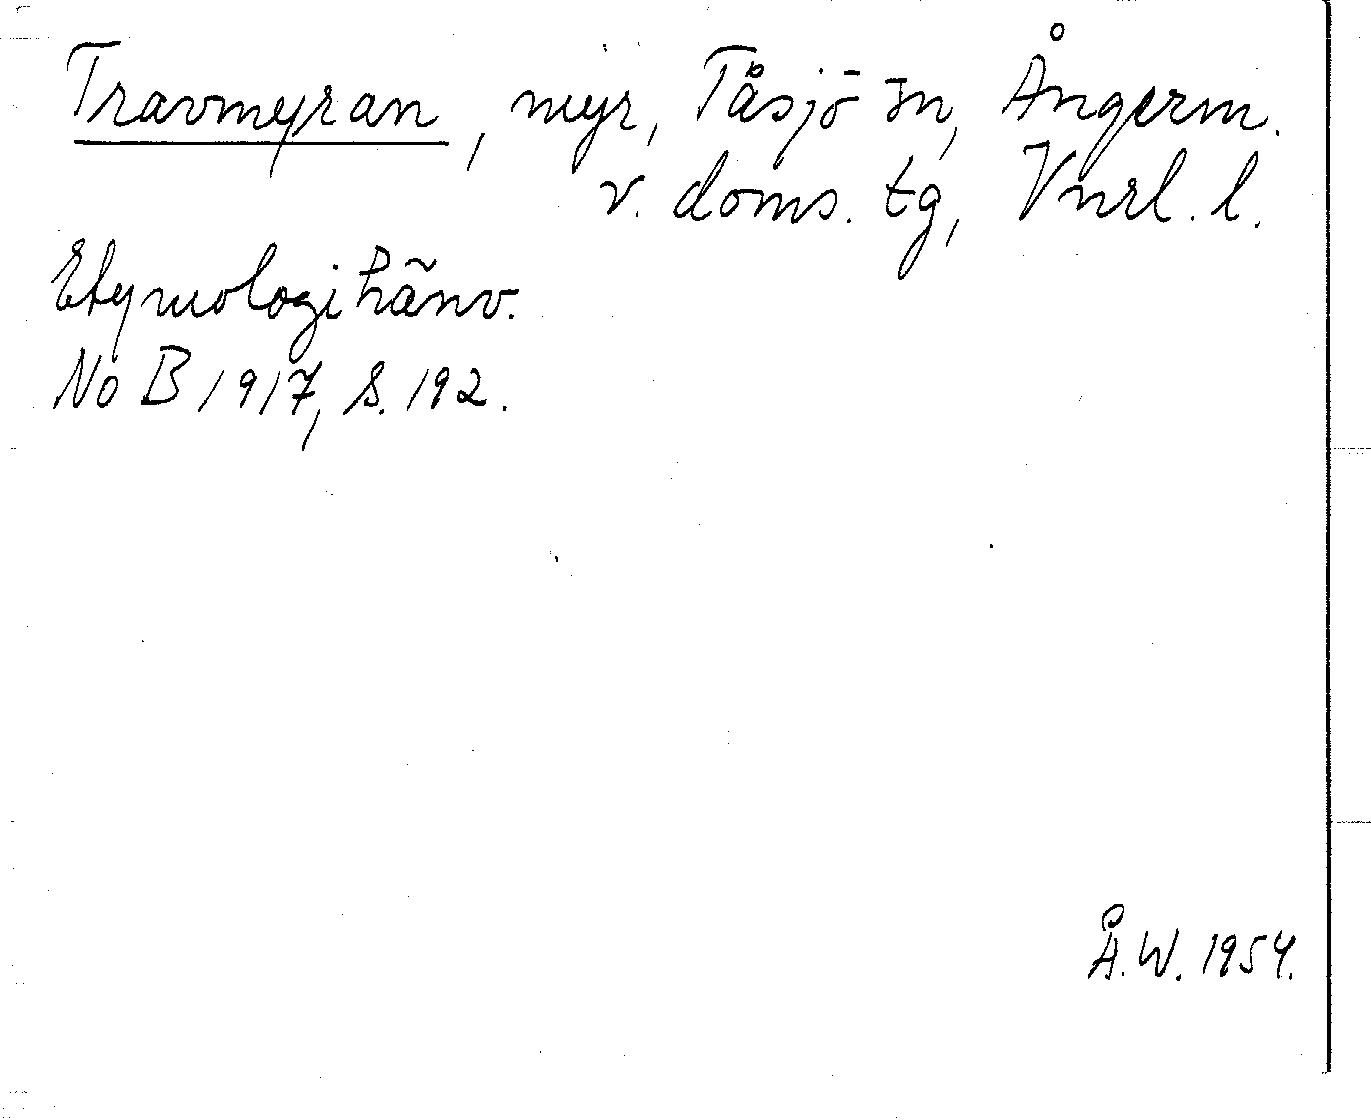 Travmyran, myr, Tåsjö sn, Ångerm.
v. doms. tg, Vnrl. l.
Etymologihänv.
NoB 1917, S. 192.
Å.W. 1954.